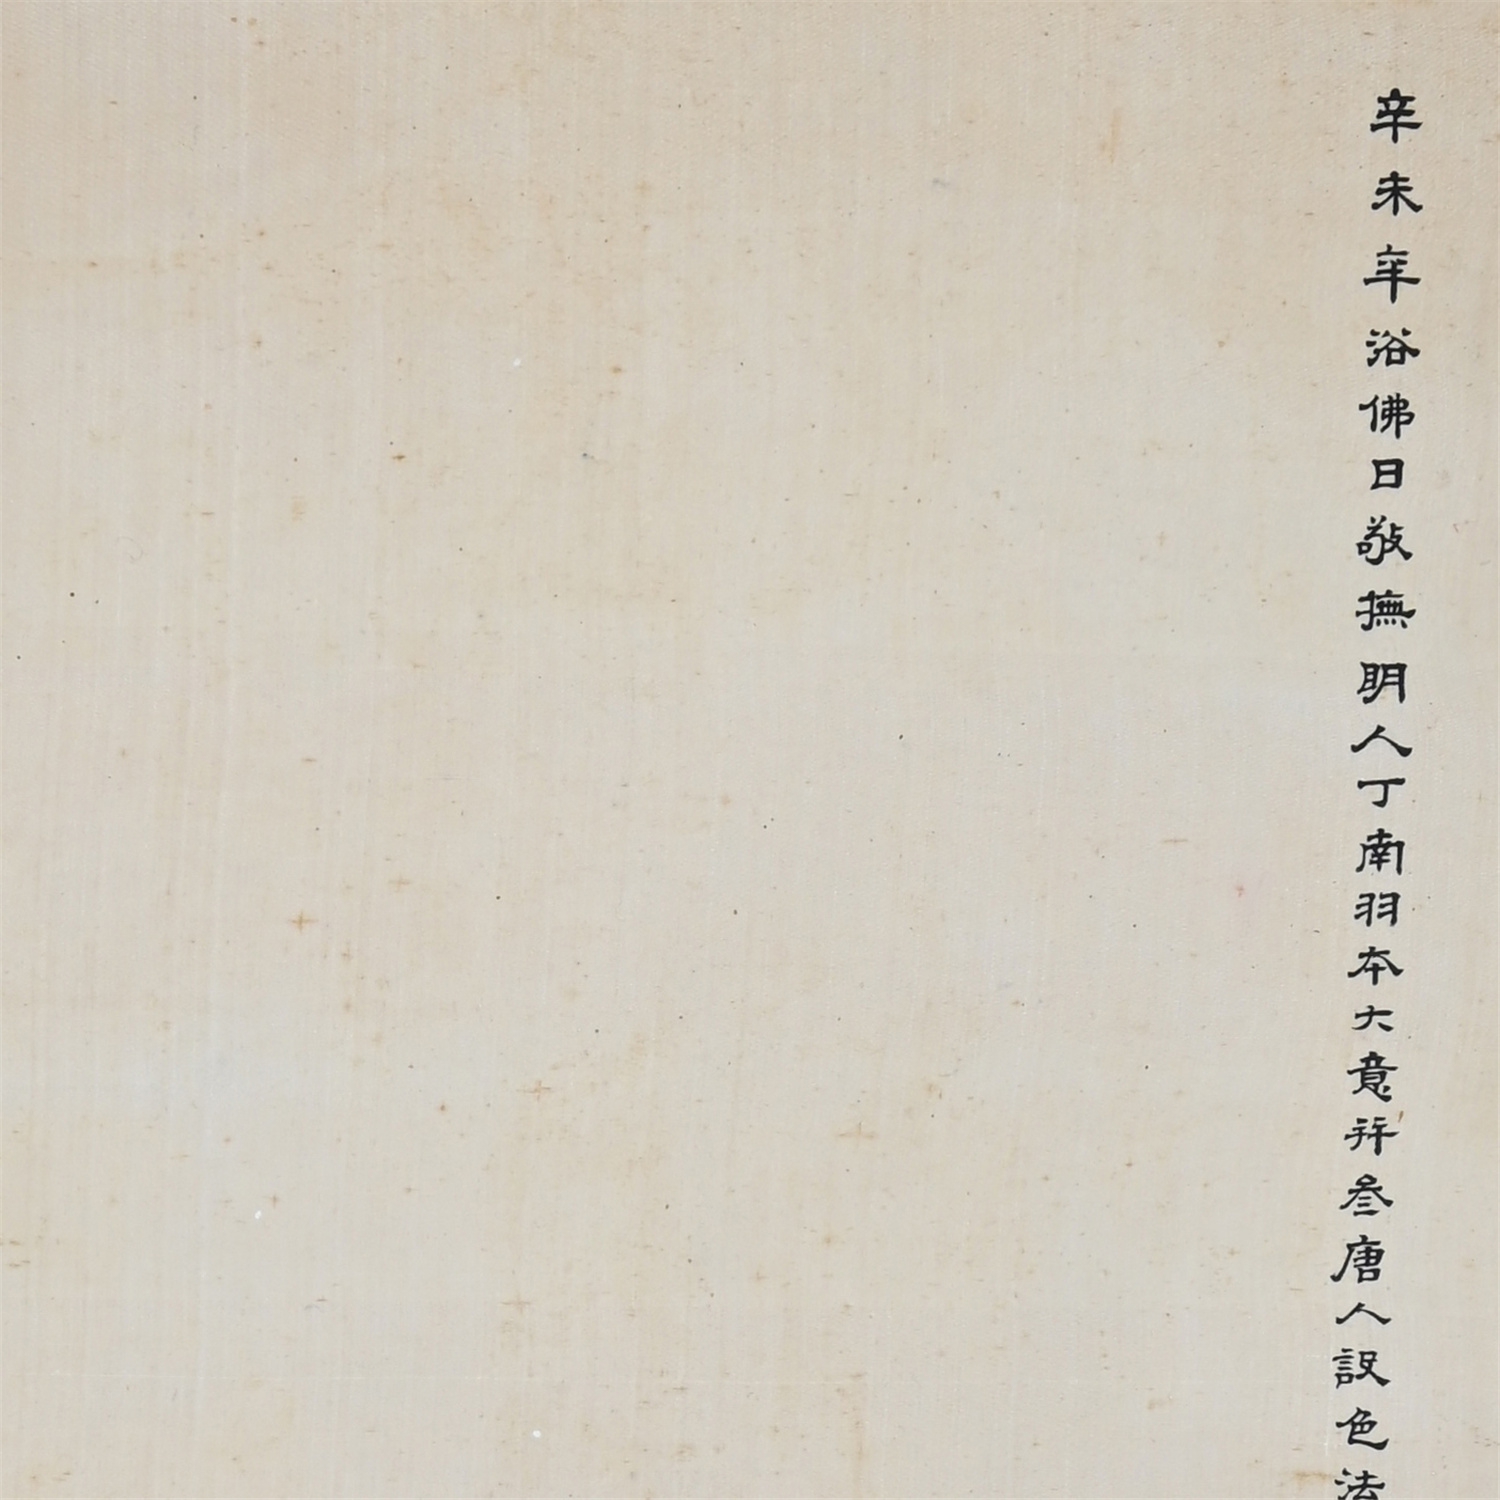 辛未年浴佛日敬撫明人丁南羽本大意并叄唐人設色法